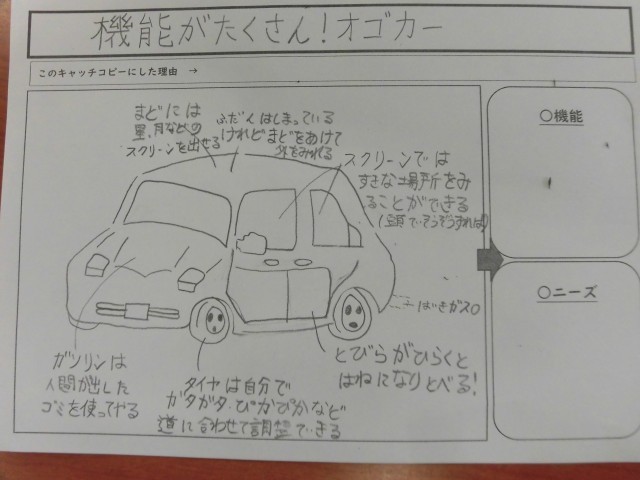 機能がたくさん!オゴカー
このキャッチコピーにした理由 →
まどには
星、月などの
スクリーンを出せる
ふだんはしまっている
けれどまどをあけて
外をみれる
スクリーンでは
すきな場所をみ
ることができる
(頭でそうぞうすれば)
はいきガス0
とびらがひらくと
はねになりとべる!
ガソリンは
人間が出した
ゴミを使ってやる
タイヤは自分で
ガタガタ・ぴかぴかなど
道に合わせて調整できる
○機能
○ニーズ